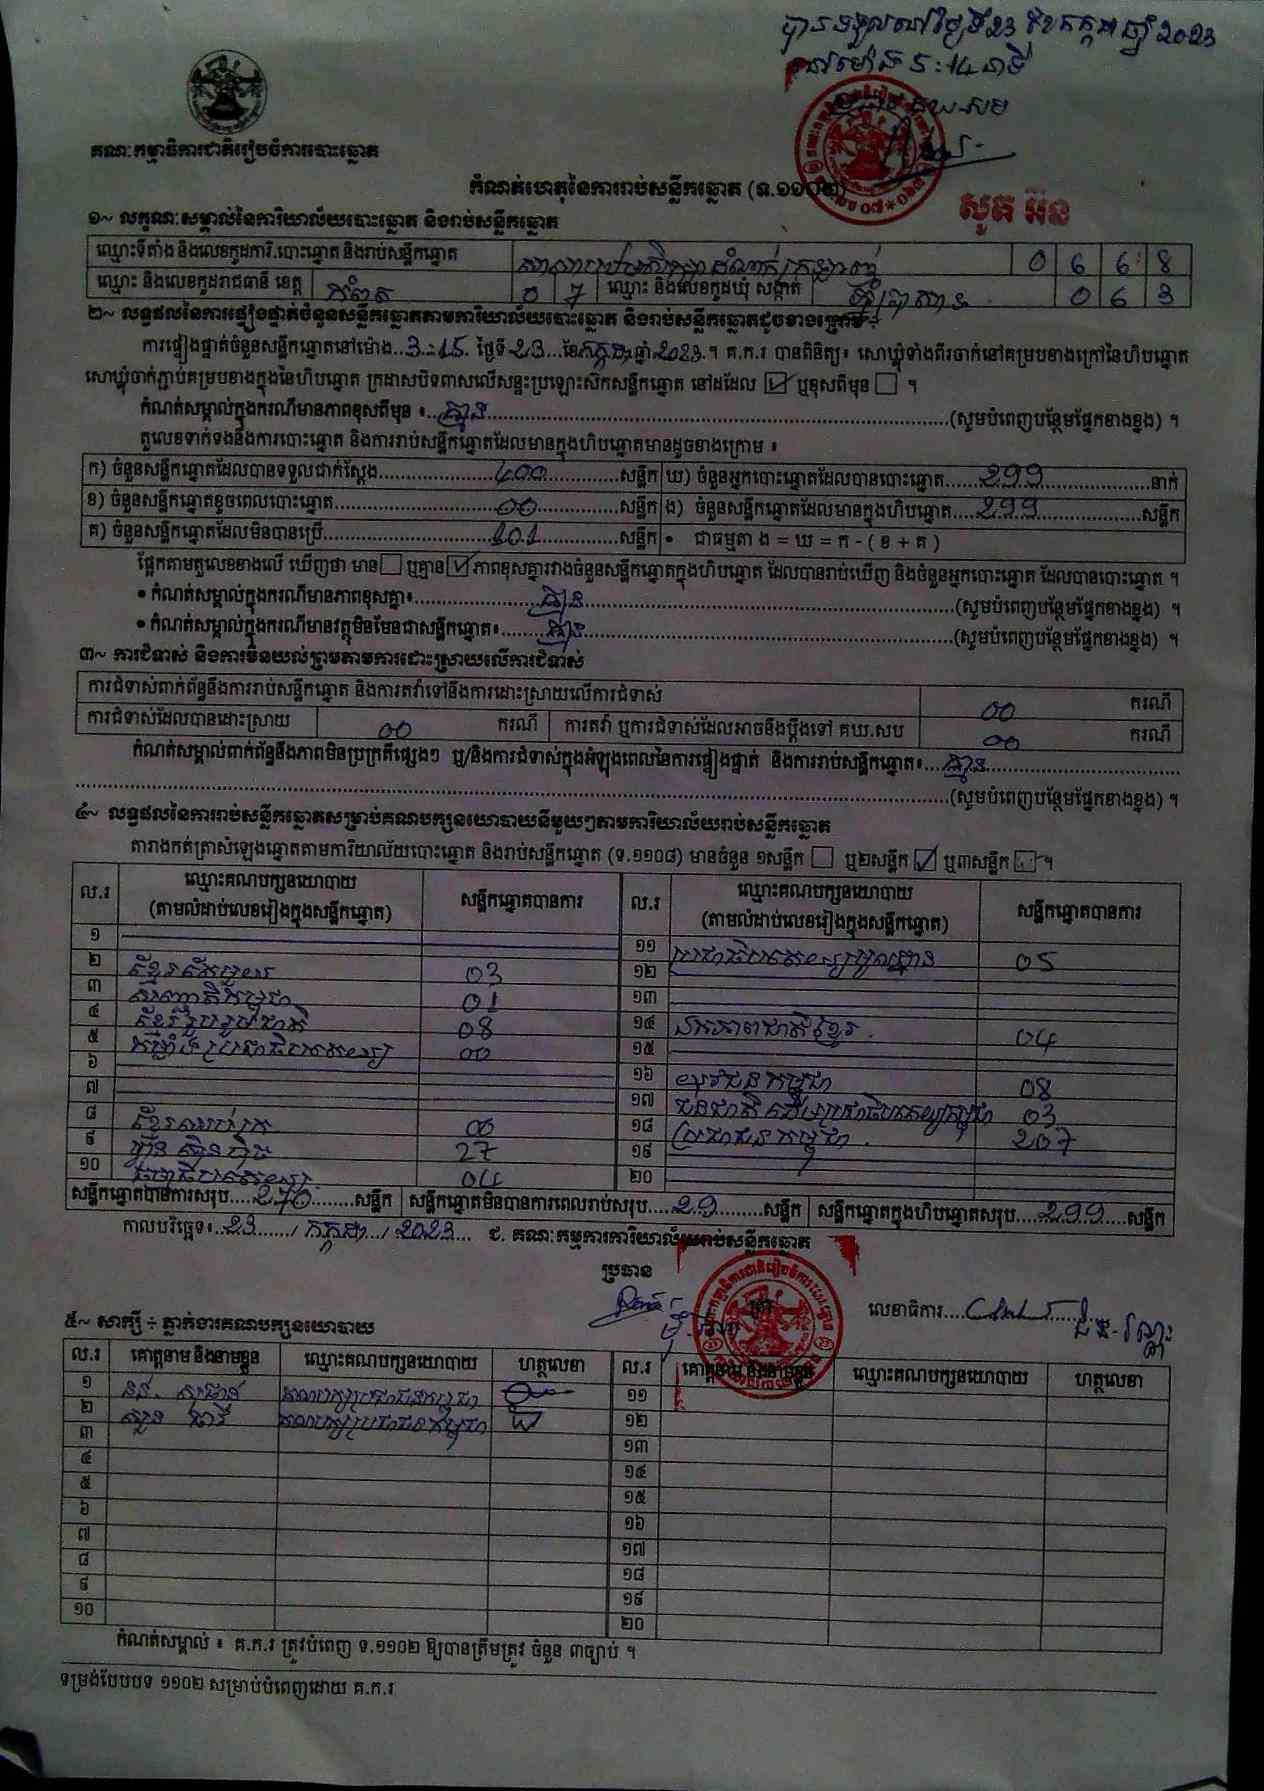 បានទទួលនៅថ្ងៃទី23 ខែកក្កដា ឆ្នាំ 2023
នៅម៉ោង 5:14 នាទី
គណៈកម្មាធិការជាតិរៀបចំការបោះឆ្នោត
កំណត់ហេតុនៃការរាប់សន្លឹកឆ្នោត (ទ.១១០២)
សូត អ៊ន
១~ លក្ខណៈសម្គាល់នៃការិយាល័យបោះឆ្នោត និងរាប់សន្លឹកឆ្នោត
ឈ្មោះទីតាំង និងលេខកូដការិ.បោះឆ្នោត និងរាប់សន្លឹកឆ្នោត 0 6 6 8
ឈ្មោះ និងលេខកូដរាជធានី ខេត្ត កំពត 0 7 ឈ្មោះ និងលេខកូដឃុំ សង្កាត់ 0 6 3
២~ លទ្ធផលនៃការផ្ទៀងផ្ទាត់ចំនួនសន្លឹកឆ្នោតតាមការិយាល័យបោះឆ្នោត និងរាប់សន្លឹកឆ្នោតដូចខាងក្រោម ÷
ការផ្ទៀងផ្ទាត់ចំនួនសន្លឹកឆ្នោតនៅម៉ោង..3:15. ថ្ងៃទី 23...ខែកក្កដា ឆ្នាំ 2023.។ គ.ក.រ បានពិនិត្យ៖ សោឃ្លុំទាំងពីរចាក់នៅគម្របខាងក្រៅនៃហិបឆ្នោត
សោឃ្លុំចាក់ភ្ជាប់គម្របខាងក្នុងនៃហិបឆ្នោត ក្រដាសបិទពាសលើសន្ទះប្រឡោះសិកសន្លឹកឆ្នោត នៅដដែល ☑ ឬខុសពីមុន ☐ ។
កំណត់សម្គាល់ក្នុងករណីមានភាពខុសពីមុន ៖..គ្មាន....(សូមបំពេញបន្ថែមផ្នែកខាងខ្នង) ។
តួលេខទាក់ទងនឹងការបោះឆ្នោត និងការរាប់សន្លឹកឆ្នោតដែលមានក្នុងហិបឆ្នោតមានដូចខាងក្រោម ៖
ក) ចំនួនសន្លឹកឆ្នោតដែលបានទទួលជាក់ស្តែង....400....សន្លឹក ឃ) ចំនួនអ្នកបោះឆ្នោតដែលបានបោះឆ្នោត....299....នាក់
ខ) ចំនួនសន្លឹកឆ្នោតខូចពេលបោះឆ្នោត....00....សន្លឹក ង) ចំនួនសន្លឹកឆ្នោតដែលមានក្នុងហិបឆ្នោត....299....សន្លឹក
គ) ចំនួនសន្លឹកឆ្នោតដែលមិនបានប្រើ....101....សន្លឹក • ជាធម្មតា ង = ឃ = ក - ( ខ + គ )
ផ្អែកតាមតួលេខខាងលើ ឃើញថា មាន ☐ ឬគ្មាន ☑ ភាពខុសគ្នារវាងចំនួនសន្លឹកឆ្នោតក្នុងហិបឆ្នោត ដែលបានរាប់ឃើញ និងចំនួនអ្នកបោះឆ្នោត ដែលបានបោះឆ្នោត ។
• កំណត់សម្គាល់ក្នុងករណីមានភាពខុសគ្នា៖....គ្មាន....(សូមបំពេញបន្ថែមផ្នែកខាងខ្នង) ។
• កំណត់សម្គាល់ក្នុងករណីមានវត្ថុមិនមែនជាសន្លឹកឆ្នោត៖....គ្មាន....(សូមបំពេញបន្ថែមផ្នែកខាងខ្នង) ។
៣~ ការជំទាស់ និងការមិនយល់ព្រមតាមការដោះស្រាយលើការជំទាស់
ការជំទាស់ពាក់ព័ន្ធនឹងការរាប់សន្លឹកឆ្នោត និងការតវ៉ាទៅនឹងការដោះស្រាយលើការជំទាស់ 00 ករណី
ការជំទាស់ដែលបានដោះស្រាយ 00 ករណី ការតវ៉ា ឬការជំទាស់ដែលអាចនឹងប្តឹងទៅ គឃ.សប 00 ករណី
កំណត់សម្គាល់ពាក់ព័ន្ធនឹងភាពមិនប្រក្រតីផ្សេងៗ ឬ/និងការជំទាស់ក្នុងអំឡុងពេលនៃការផ្ទៀងផ្ទាត់ និងការរាប់សន្លឹកឆ្នោត៖....គ្មាន....
....(សូមបំពេញបន្ថែមផ្នែកខាងខ្នង) ។
៤~ លទ្ធផលនៃការរាប់សន្លឹកឆ្នោតសម្រាប់គណបក្សនយោបាយនីមួយៗតាមការិយាល័យរាប់សន្លឹកឆ្នោត
តារាងកត់ត្រាសំឡេងឆ្នោតតាមការិយាល័យបោះឆ្នោត និងរាប់សន្លឹកឆ្នោត (ទ.១១០៨) មានចំនួន ១សន្លឹក ☐ ឬ២សន្លឹក ☑ ឬ៣សន្លឹក ☐ ។
ល.រ ឈ្មោះគណបក្សនយោបាយ (តាមលំដាប់លេខរៀងក្នុងសន្លឹកឆ្នោត) សន្លឹកឆ្នោតបានការ ល.រ ឈ្មោះគណបក្សនយោបាយ (តាមលំដាប់លេខរៀងក្នុងសន្លឹកឆ្នោត) សន្លឹកឆ្នោតបានការ
១ ១១ ប្រជាធិបតេយ្យមូលដ្ឋាន 05
២ ខ្មែរតែមួយ 03 ១២
៣ សញ្ជាតិកម្ពុជា 01 ១៣
៤ ខ្មែររួបរួមជាតិ 08 ១៤ ឯកភាពជាតិខ្មែរ 04
៥ កម្លាំងប្រជាធិបតេយ្យ 00 ១៥
៦ ១៦ យុវជនកម្ពុជា 08
៧ ១៧ ជនជាតិដើមប្រជាធិបតេយ្យកម្ពុជា 03
៨ ខ្មែរឈប់ក្រ 00 ១៨ ប្រជាជនកម្ពុជា 207
៩ ហ៊្វុនស៊ិនប៉ិច 27 ១៩
១០ ធម្មាធិបតេយ្យ 04 ២០
សន្លឹកឆ្នោតបានការសរុប....270....សន្លឹក សន្លឹកឆ្នោតមិនបានការពេលរាប់សរុប....29....សន្លឹក សន្លឹកឆ្នោតក្នុងហិបឆ្នោតសរុប....299....សន្លឹក
កាលបរិច្ឆេទ៖..23..../ កក្កដា../ 2023... ជ. គណៈកម្មការការិយាល័យរាប់សន្លឹកឆ្នោត
ប្រធាន
លេខាធិការ
៥~ សាក្សី ÷ ភ្នាក់ងារគណបក្សនយោបាយ
ល.រ គោត្តនាម និងនាមខ្លួន ឈ្មោះគណបក្សនយោបាយ ហត្ថលេខា ល.រ គោត្តនាម និងនាមខ្លួន ឈ្មោះគណបក្សនយោបាយ ហត្ថលេខា
១ គណបក្សប្រជាជនកម្ពុជា ១១
២ គណបក្សប្រជាជនកម្ពុជា ១២
៣ ១៣
៤ ១៤
៥ ១៥
៦ ១៦
៧ ១៧
៨ ១៨
៩ ១៩
១០ ២០
កំណត់សម្គាល់ ៖ គ.ក.រ ត្រូវបំពេញ ទ.១១០២ ឱ្យបានត្រឹមត្រូវ ចំនួន ៣ច្បាប់ ។
ទម្រង់បែបបទ ១១០២ សម្រាប់បំពេញដោយ គ.ក.រ